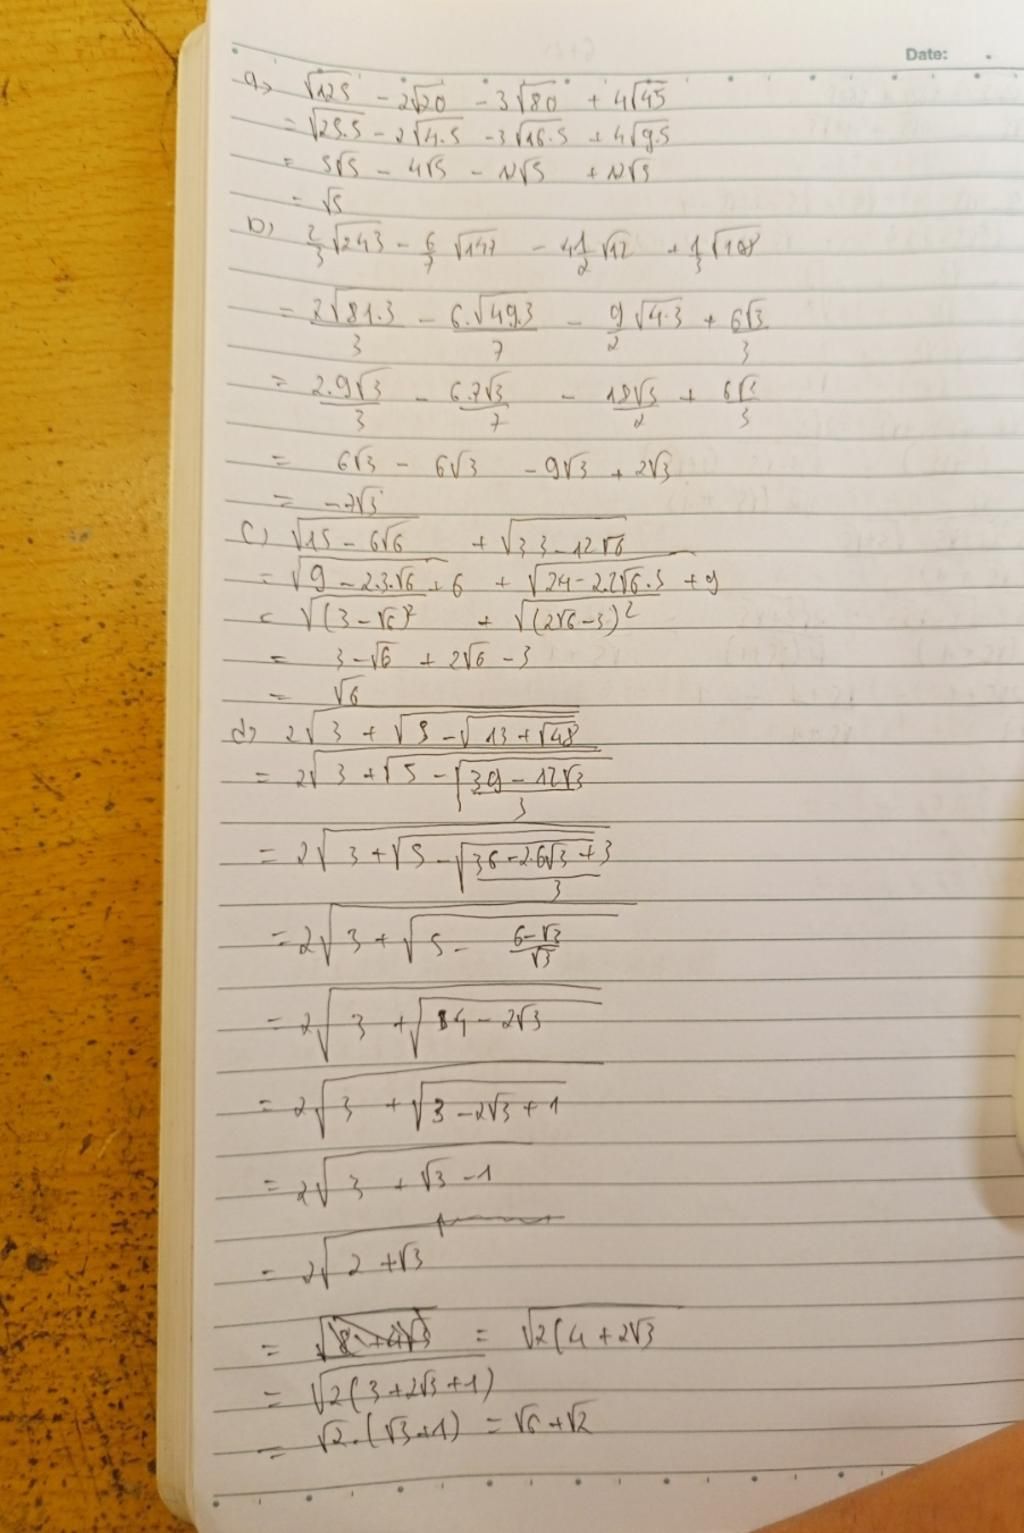 Date:
a) √125 - 2√20 - 3√80 + 4√45
= √25.5 - 2√4.5 - 3√16.5 + 4√9.5
= 5√5 - 4√5 - 12√5 + 12√5
= √5
b) 2/3 √243 - 6/7 √147 - 4 1/2 √12 + 1/3 √108
= 2√81.3/3 - 6.√49.3/7 - 9/2 √4.3 + 6√3/3
= 2.9√3/3 - 6.7√3/7 - 18√3/2 + 6√3/3
= 6√3 - 6√3 - 9√3 + 2√3
= -7√3
c) √(15 - 6√6) + √(33 - 12√6)
= √(9 - 2.3.√6 + 6) + √(24 - 2.2√6.3 + 9)
= √(3 - √6)² + √(2√6 - 3)²
= 3 - √6 + 2√6 - 3
= √6
d) 2√(3 + √(5 - √(13 + √48)))
= 2√(3 + √(5 - √((39 - 12√3)/3)))
= 2√(3 + √(5 - √((36 - 2.6√3 + 3)/3)))
= 2√(3 + √(5 - (6 - √3)/√3))
= 2√(3 + √(4 - 2√3))
= 2√(3 + √(3 - 2√3 + 1))
= 2√(3 + √3 - 1)
= 2√(2 + √3)
= √(8 + 4√3) = √(2(4 + 2√3)
= √(2(3 + 2√3 + 1))
= √2.(√3 + 1) = √6 + √2